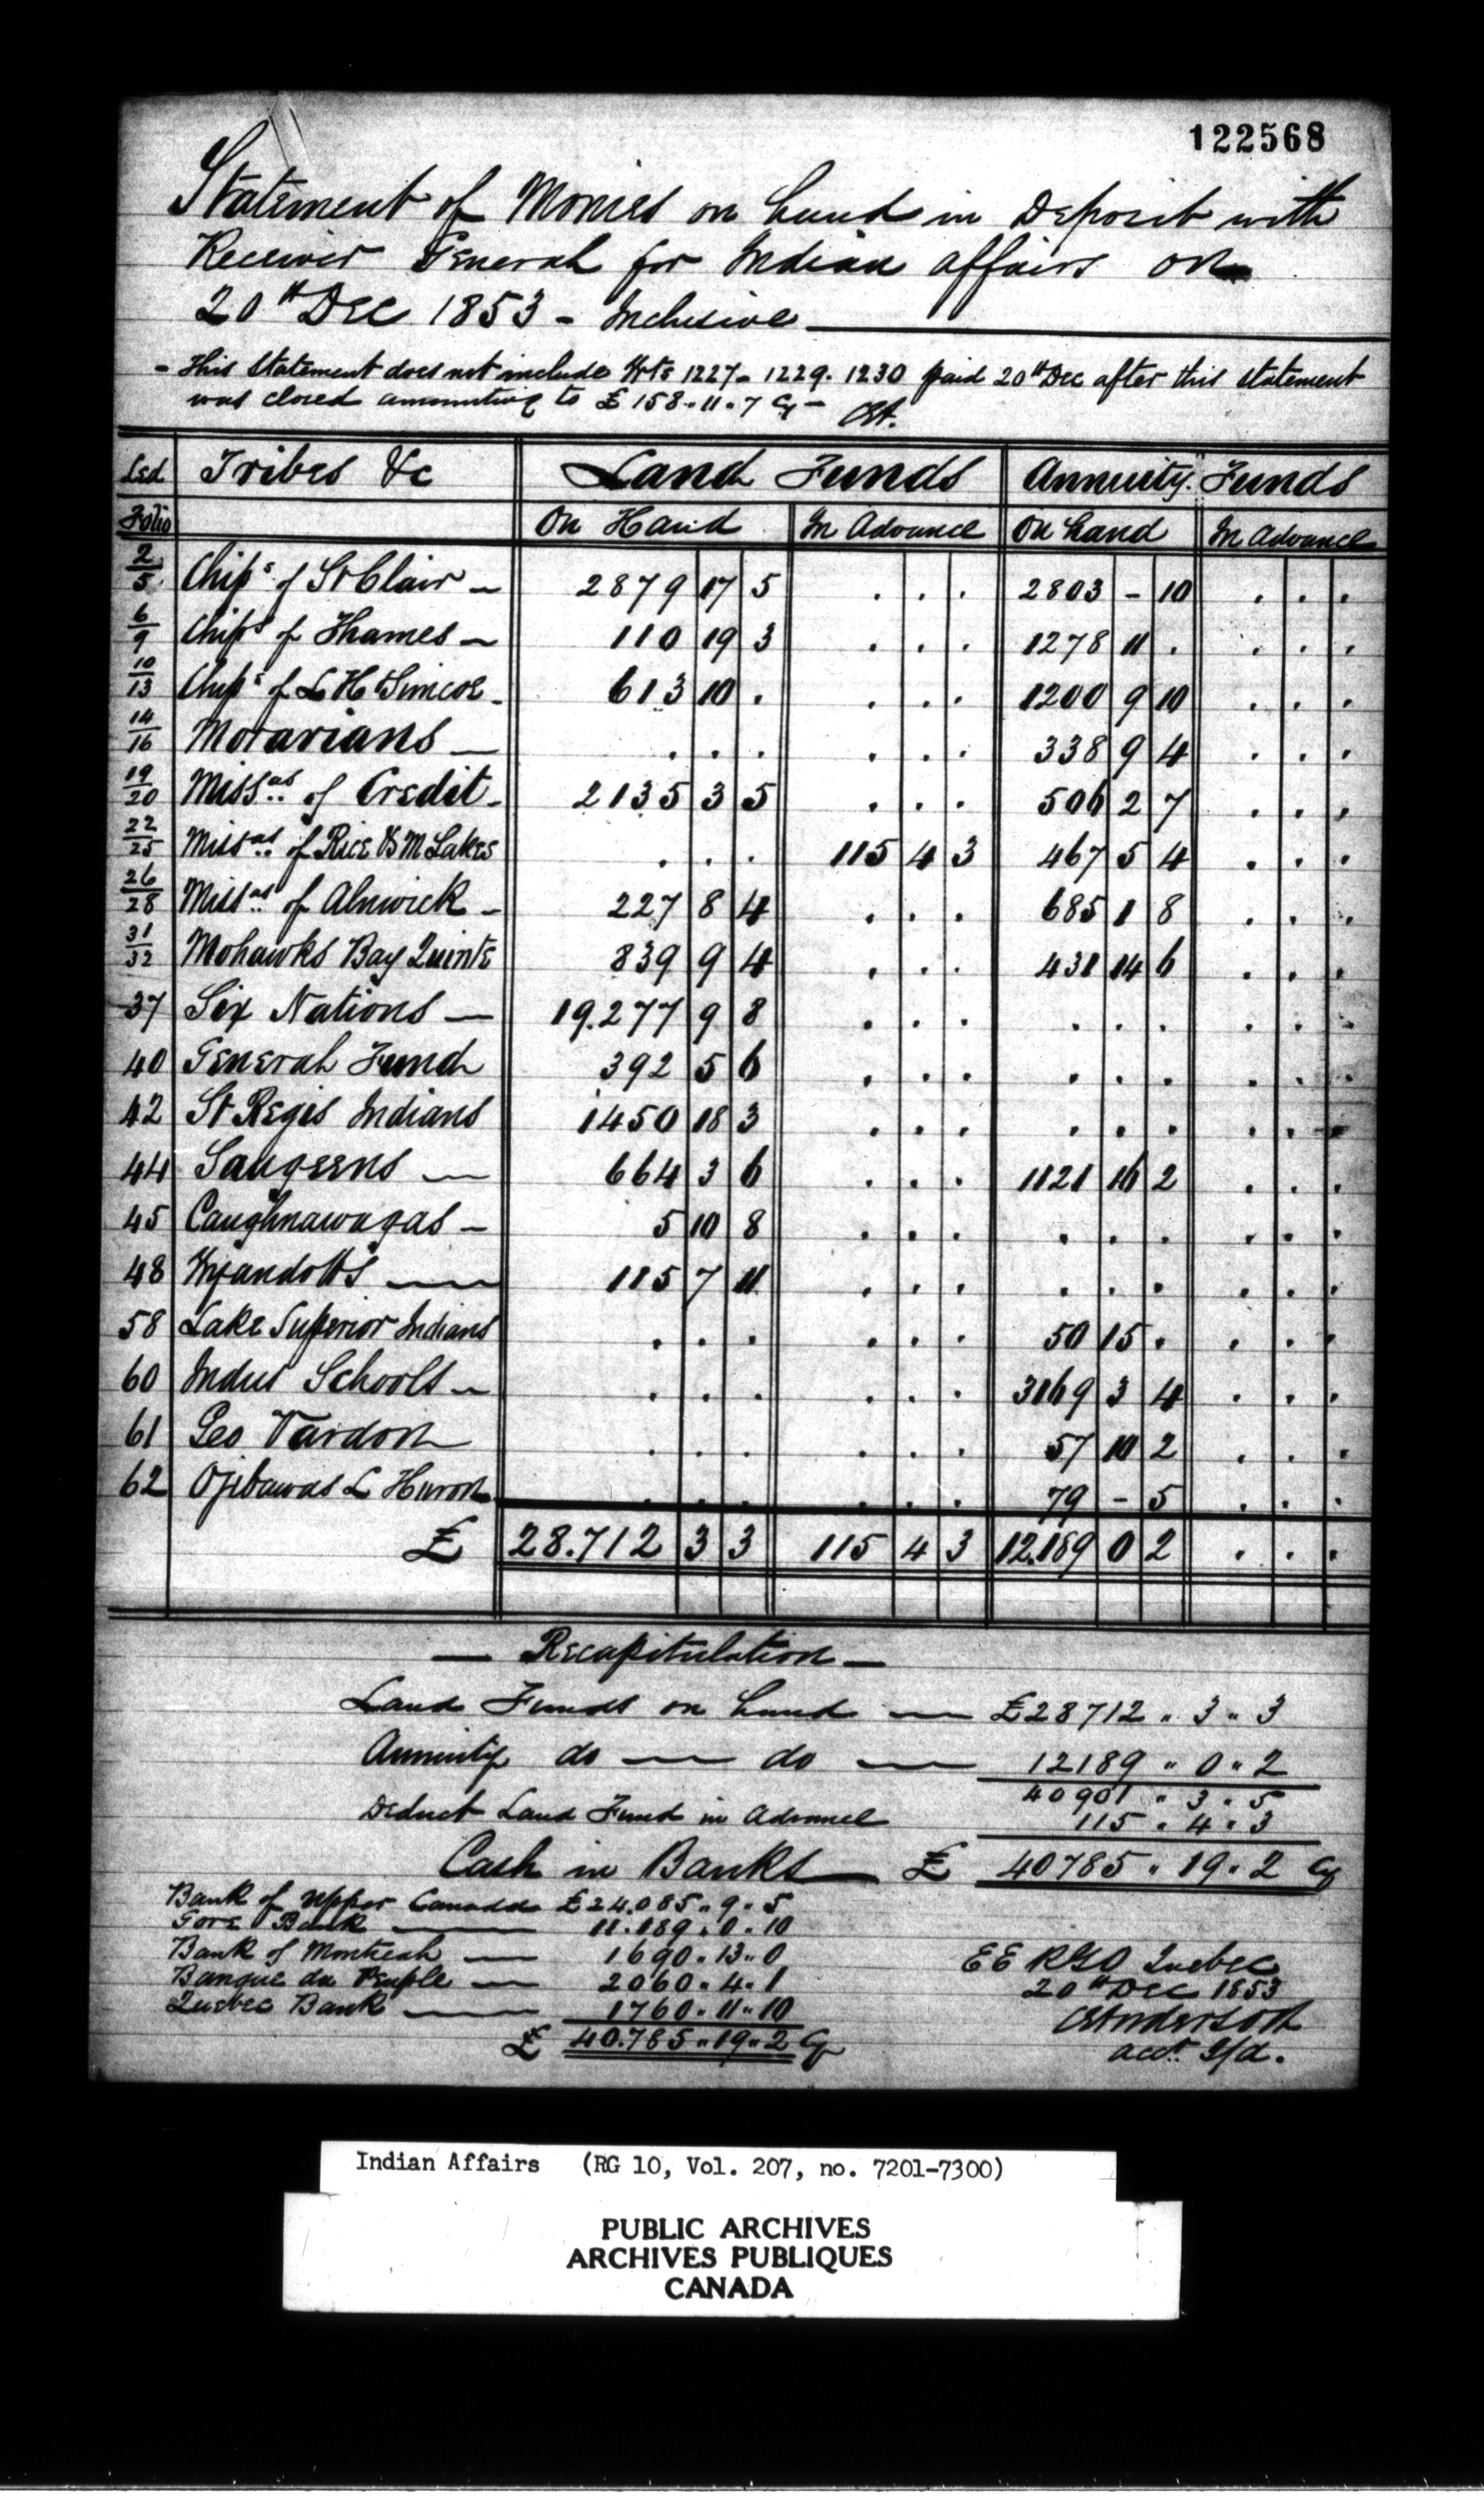 122568
Statement of Monies on hand in Deposit with
Receiver General for Indian affairs on
20th Dec 1853 - Inclusive
- This Statement does not include Wts 1227 - 1229. 1230 paid 20th Dec after this statement
was closed amounting to £158.11.7 Cy -
Led Folio | Tribes &c | Land Funds | Annuity Funds
On Hand | In Advance | On hand | In Advance
2/5 Chips of St Clair - 2879 17 5 . . . 2803 - 10 . . .
6/9 Chips of Thames - 110 19 3 . . . 1278 11 . . . .
10/13 Chips of L H & Simcoe - 613 10 . . . . 1200 9 10 . . .
14/16 Moravians - . . . . . . 338 9 4 . . .
19/20 Missas of Credit - 2135 3 5 . . . 506 2 7 . . .
22/25 Missas of Rice & M Lakes . . . 115 4 3 467 5 4 . . .
26/28 Missas of Alnwick - 227 8 4 . . . 685 1 8 . . .
31/32 Mohawks Bay Quinte 839 9 4 . . . 431 14 6 . . .
37 Six Nations - 19.277 9 8 . . . . . . . . .
40 General Fund 392 5 6 . . . . . . . . .
42 St Regis Indians 1450 18 3 . . . . . . . . .
44 Saugeens - 664 3 6 . . . 1121 16 2 . . .
45 Caughnawagas - 5 10 8 . . . . . . . . .
48 Wyandotts - 115 7 11 . . . . . . . . .
58 Lake Superior Indians . . . . . . 50 15 . . . .
60 Indus Schools - . . . . . . 3169 3 4 . . .
61 Geo Vardon . . . . . . 57 10 2 . . .
62 Ojibawas L Huron . . . . . . 79 - 5 . . .
£ 28.712 3 3 115 4 3 12.189 0 2 . . .
- Recapitulation -
Land Funds on hand - £28712 " 3 " 3
Annuity do - do - 12189 " 0 " 2
40901 " 3 " 5
Deduct Land Fund in Advance 115 . 4 . 3
Cash in Banks - £ 40785 " 19 " 2 Cy
Bank of Upper Canada £24.085 " 9 " 5
Gore Bank - 11.189 . 0 . 10
Bank of Montreal - 1690 . 13 " 0
Banque du Peuple - 2060 . 4 . 1
Quebec Bank - 1760 . 11 " 10
£ 40.785 " 19 " 2 Cy
EE RGO Quebec
20th Dec 1853
CE Anderson
acct I/d.
Indian Affairs (RG 10, Vol. 207, no. 7201-7300)
PUBLIC ARCHIVES
ARCHIVES PUBLIQUES
CANADA